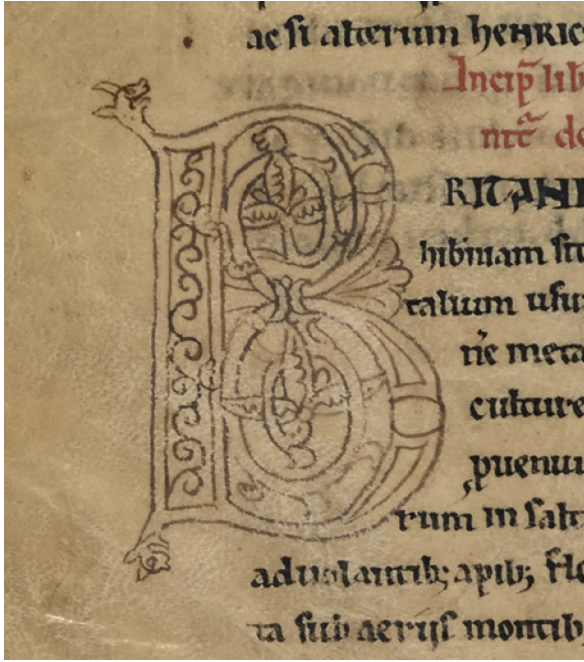 ac si alterum henric
Incip̄ lib
ntc̄ de
BRITANI
hibiniam
talium usu
ne meta
culture
puenui
rum in salt
aduolantib; apib; flo
ta sub aerijs montib